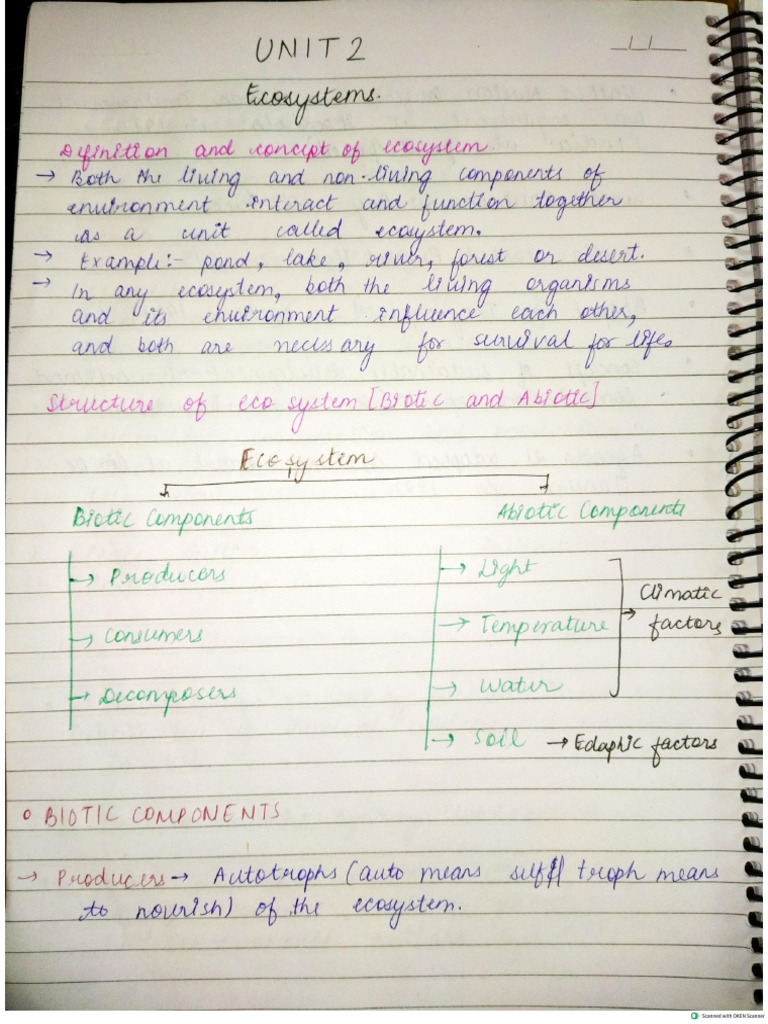 UNIT 2
Ecosystems.
Definition and concept of ecosystem
→ Both the living and non-living components of
environment interact and function together
as a unit called ecosystem.
→ Example:- pond, lake, river, forest or desert.
→ In any ecosystem, both the living organisms
and its environment influence each other,
and both are necssary for survival for life.
Structure of eco system [Biotic and Abiotic]
Ecosystem
Biotic Components
Abiotic Components
→ Producers
→ Consumers
→ Decomposers
→ Light
→ Temperature
→ Water
→ Climatic
factors
→ Soil → Edaphic factors
o BIOTIC COMPONENTS
→ Producers → Autotrophs (auto means self troph means
to nourish) of the ecosystem.
Scanned with OKEN Scanner